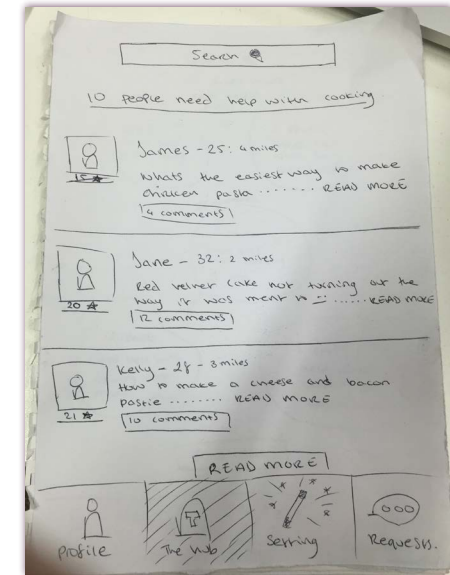 Search
10 people need help with cooking
James - 25: 4 miles
15
Whats the easiest way to make
chicken pasta ........ READ MORE
4 comments
Jane - 32: 2 miles
Red velvet cake not turning out the
20
way it was ment to ...... READ MORE
12 comments
Kelly - 28 - 3 miles
How to make a cheese and bacon
21
pastie ........ READ MORE
10 comments
READ MORE
T
Profile
The hub
Setting
Requests.